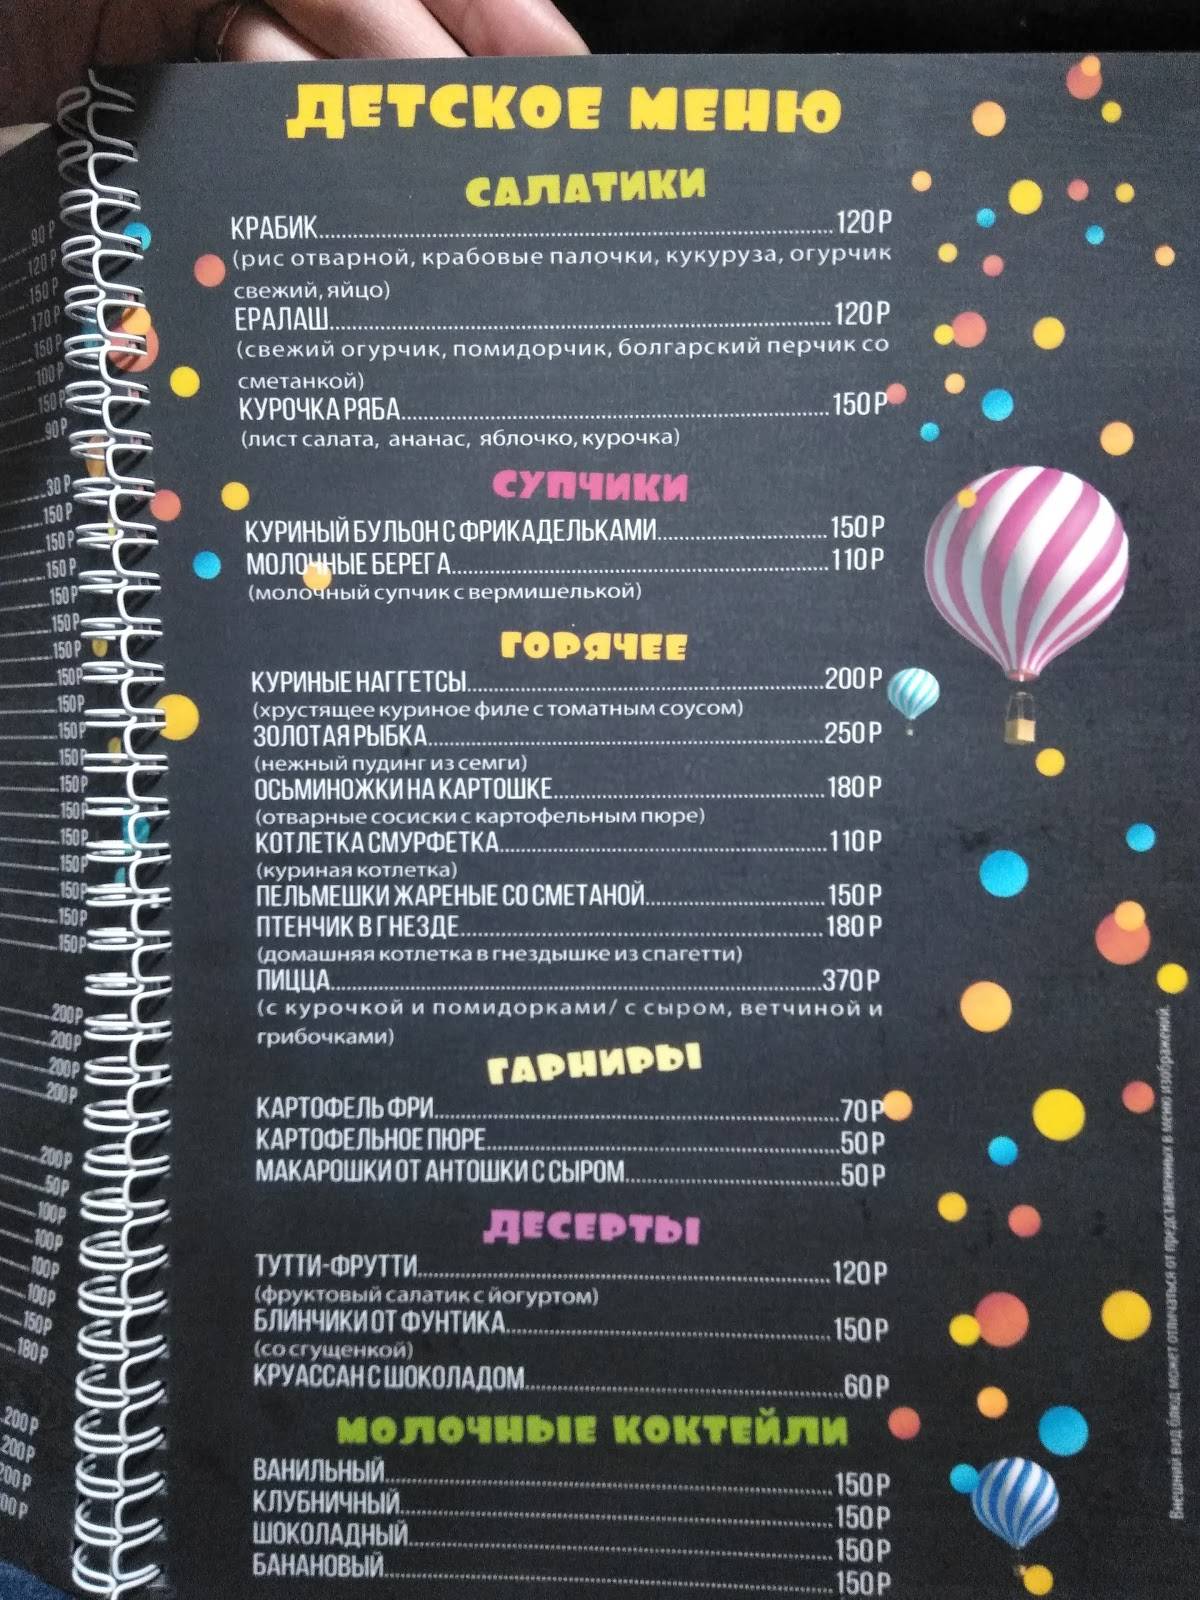 ДЕТСКОЕ МЕНЮ
САЛАТИКИ
КРАБИК..........120 Р
(рис отварной, крабовые палочки, кукуруза, огурчик
свежий, яйцо)
ЕРАЛАШ..........120 Р
(свежий огурчик, помидорчик, болгарский перчик со
сметанкой)
КУРОЧКА РЯБА..........150 Р
(лист салата, ананас, яблочко, курочка)
СУПЧИКИ
КУРИНЫЙ БУЛЬОН С ФРИКАДЕЛЬКАМИ..........150 Р
МОЛОЧНЫЕ БЕРЕГА..........110 Р
(молочный супчик с вермишелькой)
ГОРЯЧЕЕ
КУРИНЫЕ НАГГЕТСЫ..........200 Р
(хрустящее куриное филе с томатным соусом)
ЗОЛОТАЯ РЫБКА..........250 Р
(нежный пудинг из семги)
ОСЬМИНОЖКИ НА КАРТОШКЕ..........180 Р
(отварные сосиски с картофельным пюре)
КОТЛЕТКА СМУРФЕТКА..........110 Р
(куриная котлетка)
ПЕЛЬМЕШКИ ЖАРЕНЫЕ СО СМЕТАНОЙ..........150 Р
ПТЕНЧИК В ГНЕЗДЕ..........180 Р
(домашняя котлетка в гнездышке из спагетти)
ПИЦЦА..........370 Р
(с курочкой и помидорками/ с сыром, ветчиной и
грибочками)
ГАРНИРЫ
КАРТОФЕЛЬ ФРИ..........70 Р
КАРТОФЕЛЬНОЕ ПЮРЕ..........50 Р
МАКАРОШКИ ОТ АНТОШКИ С СЫРОМ..........50 Р
ДЕСЕРТЫ
ТУТТИ-ФРУТТИ..........120 Р
(фруктовый салатик с йогуртом)
БЛИНЧИКИ ОТ ФУНТИКА..........150 Р
(со сгущенкой)
КРУАССАН С ШОКОЛАДОМ..........60 Р
МОЛОЧНЫЕ КОКТЕЙЛИ
ВАНИЛЬНЫЙ..........150 Р
КЛУБНИЧНЫЙ..........150 Р
ШОКОЛАДНЫЙ..........150 Р
БАНАНОВЫЙ..........150 Р
Внешний вид блюд может отличаться от представленных в меню изображений.
90 Р
120 Р
150 Р
170 Р
150 Р
100 Р
150 Р
90 Р
30 Р
150 Р
150 Р
150 Р
150 Р
150 Р
150 Р
150 Р
150 Р
150 Р
150 Р
150 Р
150 Р
150 Р
150 Р
150 Р
150 Р
150 Р
200 Р
200 Р
200 Р
200 Р
200 Р
50 Р
100 Р
100 Р
100 Р
100 Р
150 Р
180 Р
200 Р
200 Р